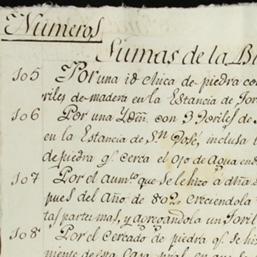 Numeros
Sumas de la Bu
105 Por una id chica de piedra con
riles de madera en la Estancia de Jor
106 Por una Ydm. con 3. Toriles de
en la Estancia de Sn. José, inclusa
de piedra q. cerca el Ojo de Agua en
107 Por el aumto. que se le hizo a dha
pues del Año de 802 creciendola
tas partes mas, y agregandola un Toril
108 Por el Cercado de piedra q. se hi